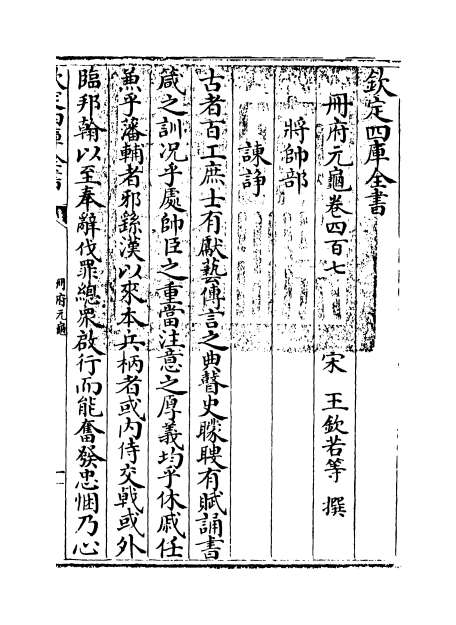 欽定四庫全書
冊府元龜卷四百七
宋 王欽若等 撰
將帥部
諫諍
古者百工庶士有獻藝傳言之典瞽史矇瞍有賦誦書
箴之訓况乎處帥臣之重當注意之厚義均乎休戚任
兼乎藩輔者邪繇漢以來本兵柄者或内侍交戟或外
臨邦翰以至奉辭伐罪總衆啟行而能奮發忠悃乃心
冊府元龜
一